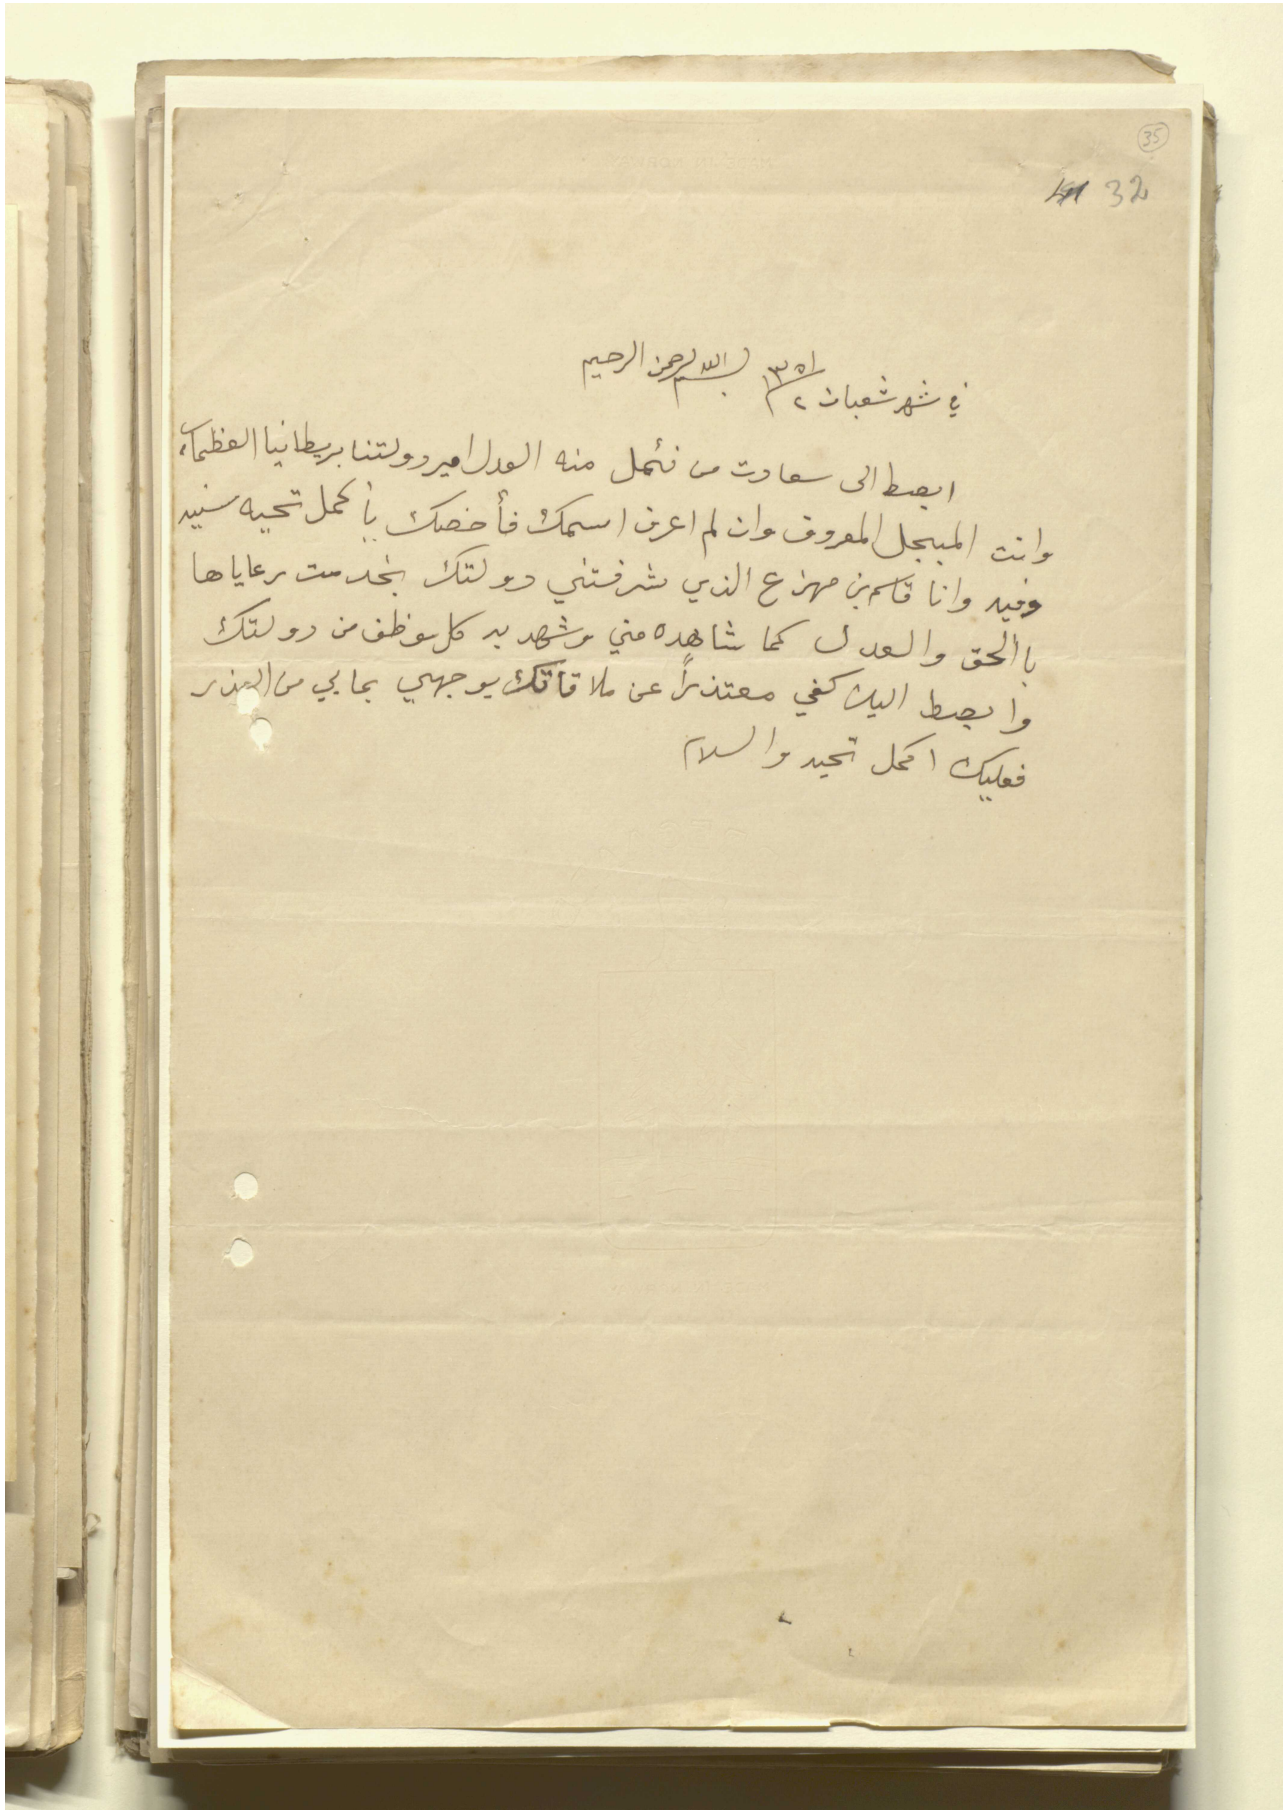 35
32
بسم الله الرحمن الرحيم
في شهر شعبان ٢ ١٣٥١
ابصط الى سعادت من نئمل منه العدل امير دولتنا بريطانيا العظماء
وانت المبجل المعروف وان لم اعرف اسمك فأخصك بأكمل تحيه سنيه
وفيه وانا قاسم بن مهزع الذي شرفتني دولتك بخدمت رعاياها
باالحق والعدل كما شاهده مني وشهد به كل موظف من دولتك
وابصط اليك كفي معتذراً عن ملاقاتك بوجهي بما بي من العذر
فعليك اكمل تحيه والسلام